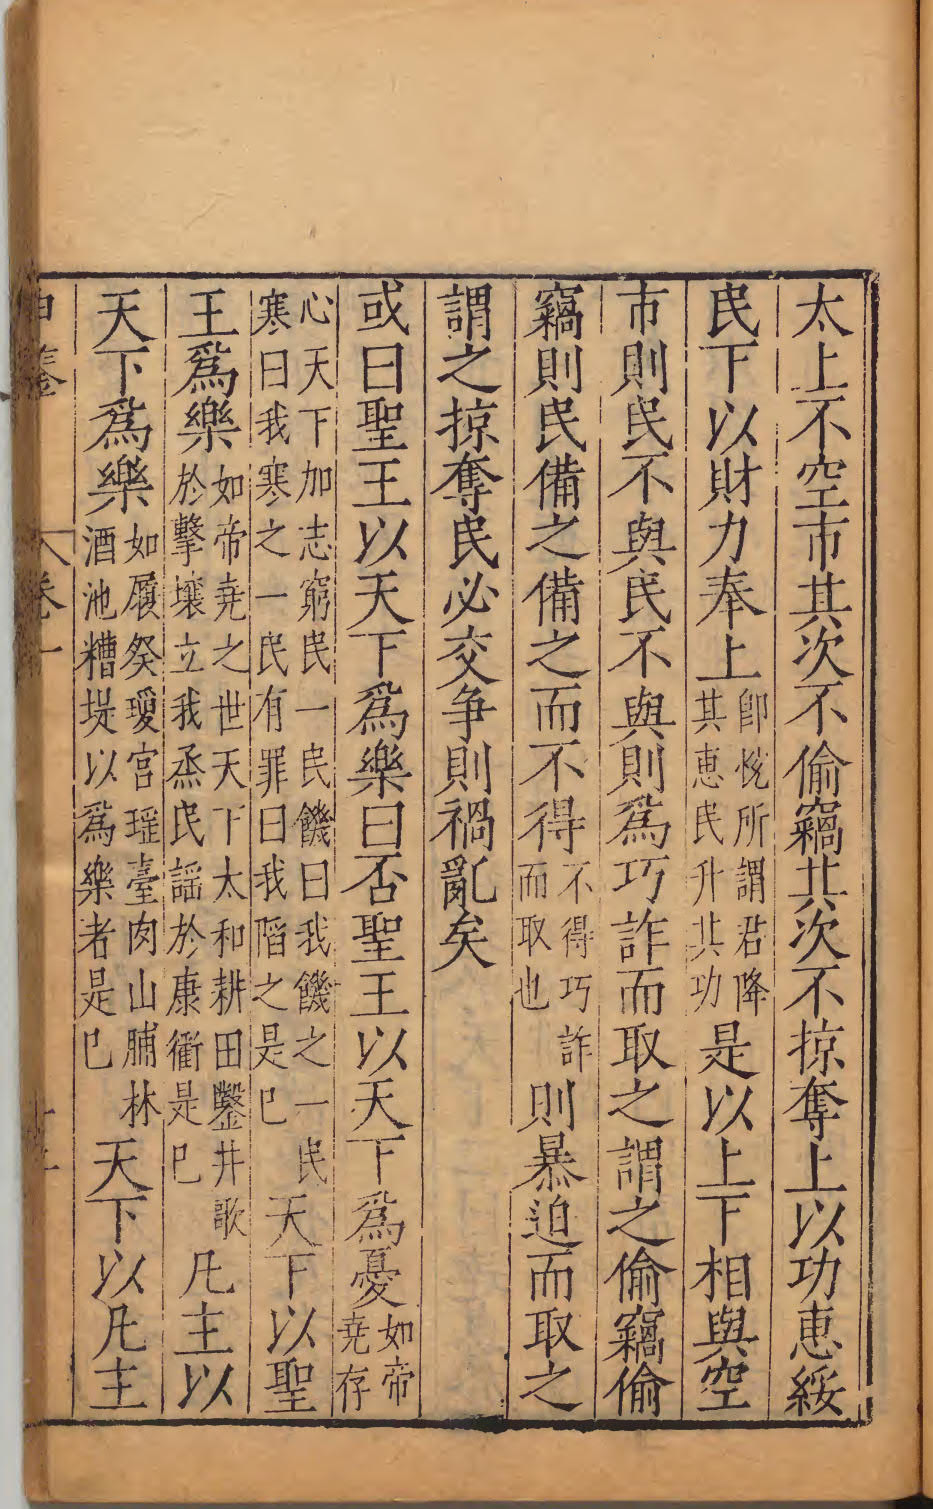 太上不空市其次不偷竊其次不掠奪上以功恵綏
民下以財力奉上即恱所謂君降其恵民升其功是以上下相與空
市則民不與民不與則爲巧詐而取之謂之偷竊偷
竊則民備之備之而不得不得巧詐而取也則暴迫而取之
謂之掠奪民必交争則禍亂矣
或曰聖王以天下爲樂曰否聖王以天下爲憂如帝堯存
心天下加志窮民一民饑曰我饑之一民寒曰我寒之一民有罪曰我陷之是已天下以聖
王爲樂如帝堯之世天下太和耕田鑿井歌於擊壤立我烝民謡於康衢是已凡主以
天下爲樂如履癸瓊宮瑶臺肉山脯林酒池糟堤以爲樂者是已天下以凡主
申鑒 卷一